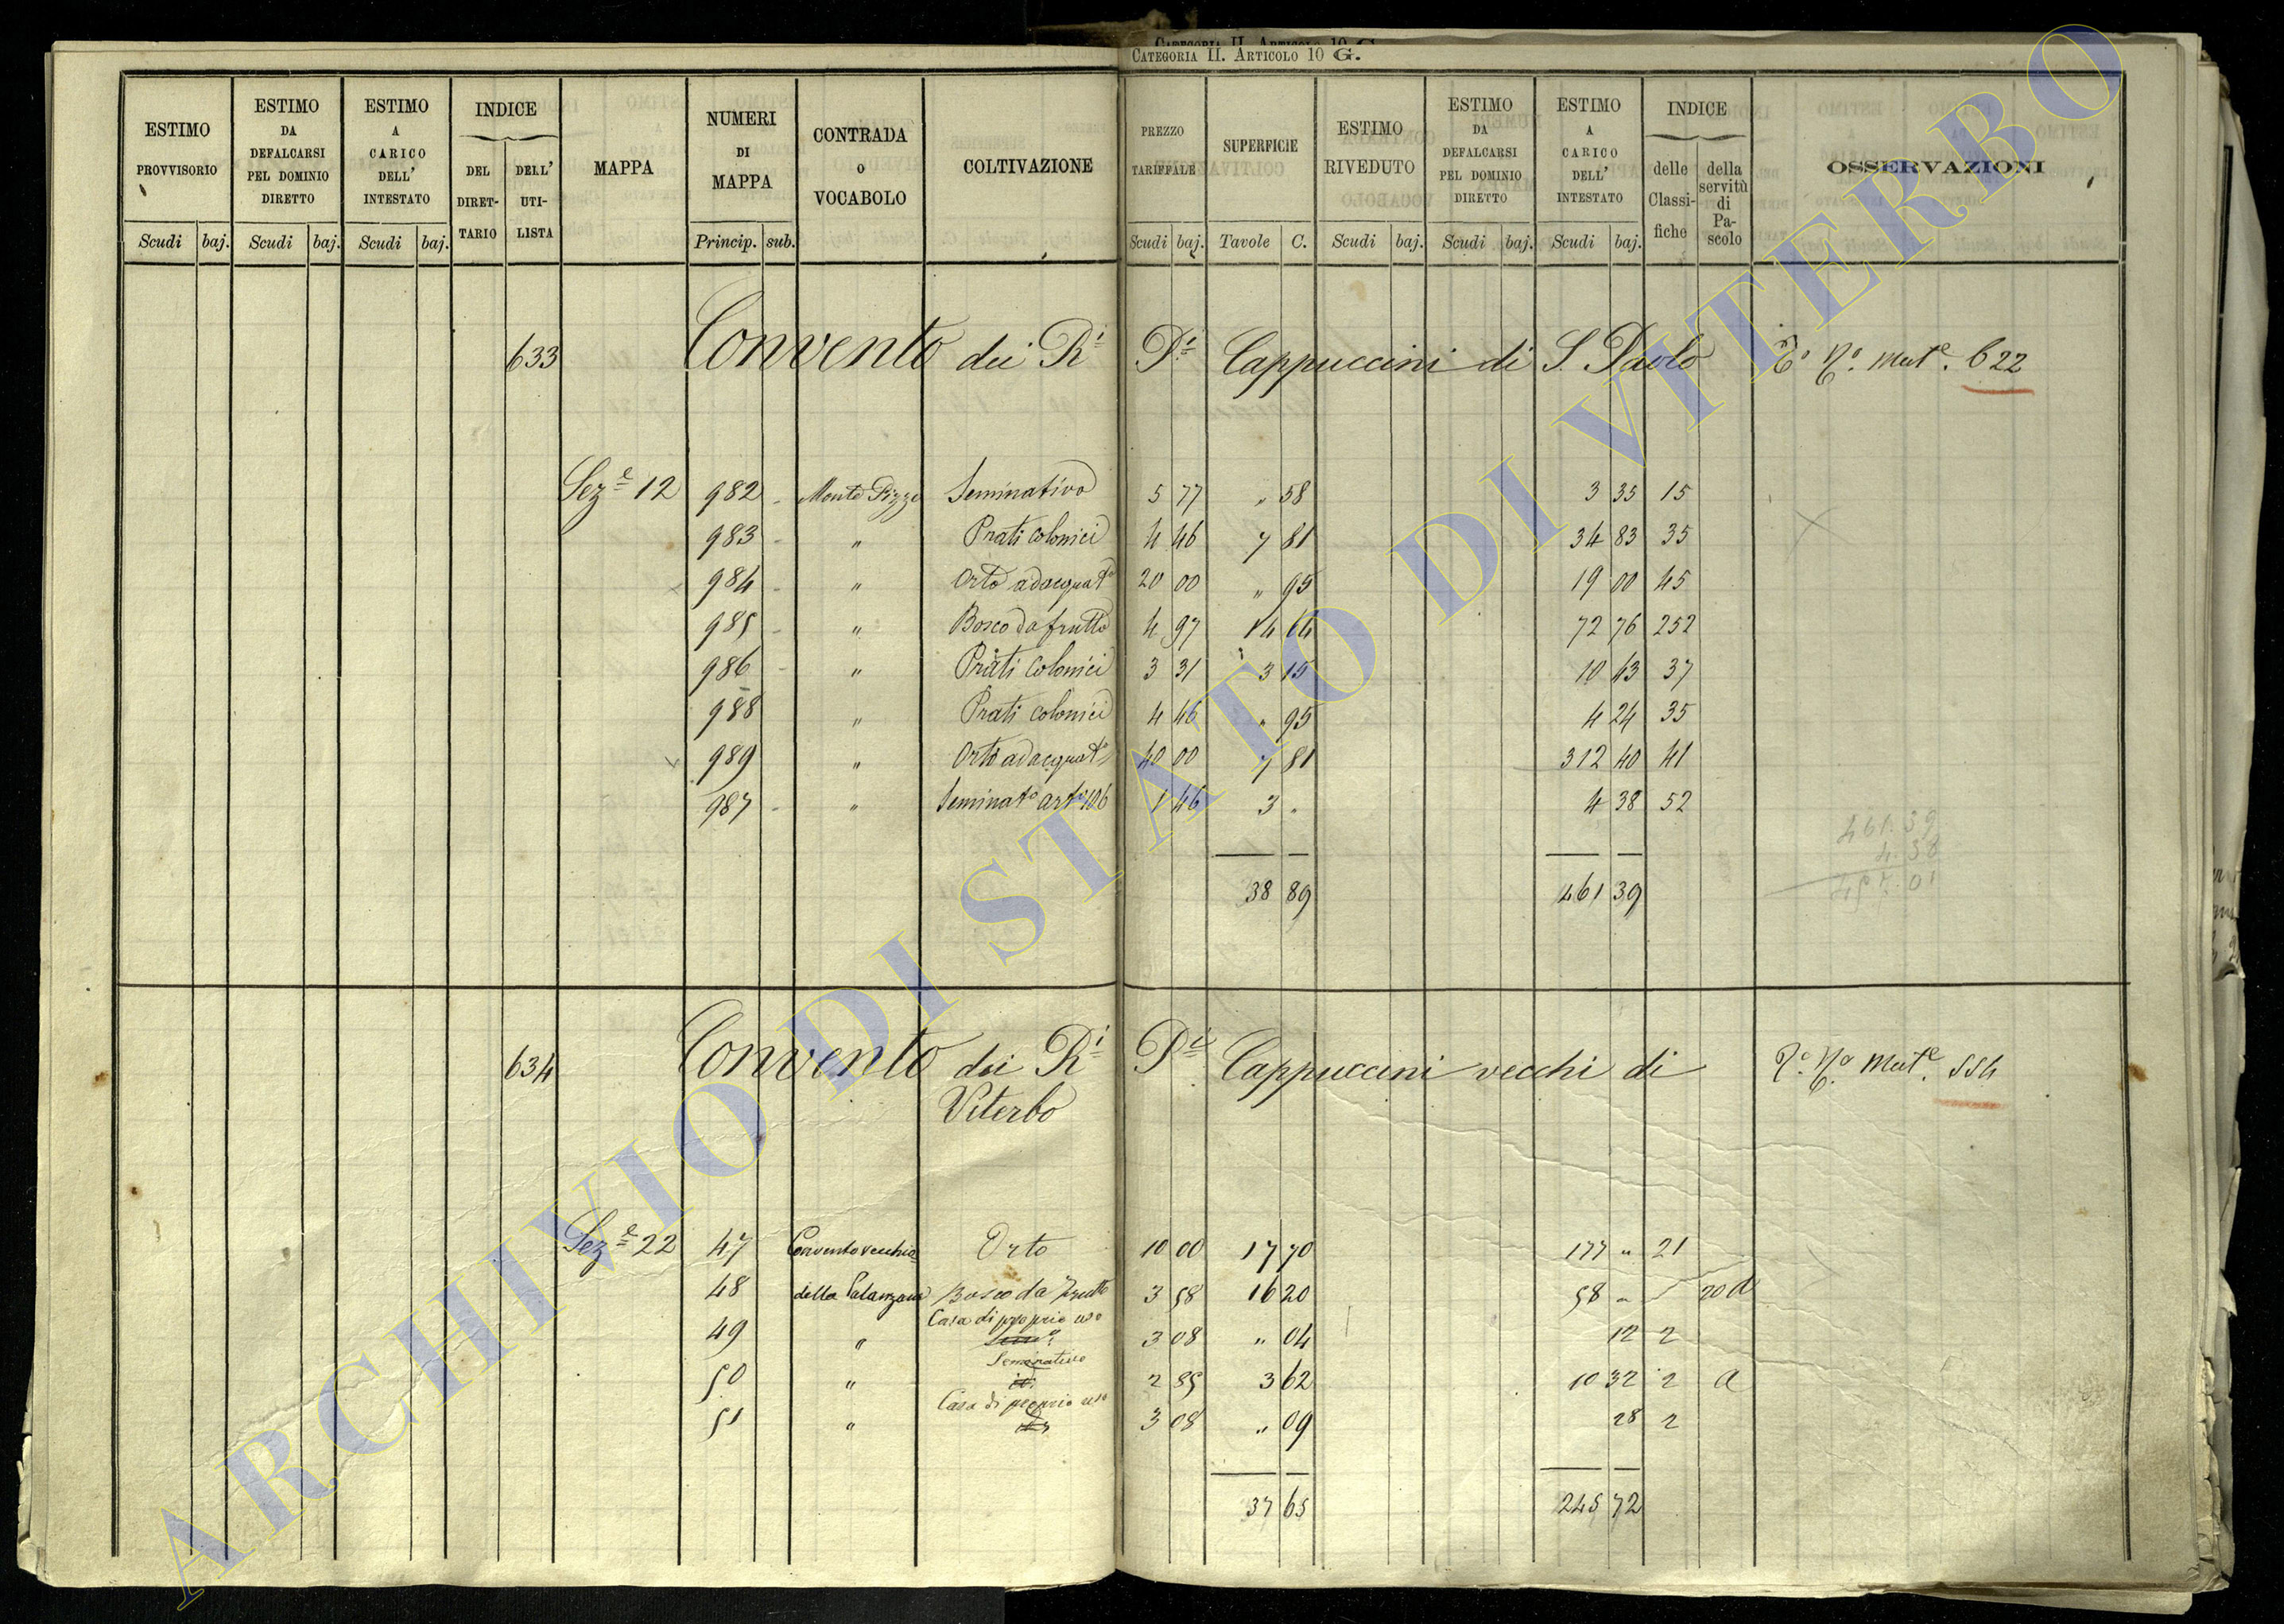 CATEGORIA II. ARTICOLO 10 G.
ESTIMO PROVVISORIO | ESTIMO DA DEFALCARSI PEL DOMINIO DIRETTO | ESTIMO A CARICO DELL' INTESTATO | INDICE DEL DIRETTARIO | DELL' UTILISTA | MAPPA | NUMERI DI MAPPA | CONTRADA o VOCABOLO | COLTIVAZIONE | PREZZO TARIFFALE | SUPERFICIE | ESTIMO RIVEDUTO | ESTIMO DA DEFALCARSI PEL DOMINIO DIRETTO | ESTIMO A CARICO DELL' INTESTATO | INDICE delle Classifiche | della servitù di Pascolo | OSSERVAZIONI
Scudi baj. Scudi baj. Scudi baj. Princip. sub. Scudi baj. Tavole C. Scudi baj. Scudi baj. Scudi baj.
633 Convento dei R.i P.i Cappuccini di S. Paolo N.o Mut.e 622
Sez.e 12 982 Monte Pizzo Seminativo 5 77 " 58 3 35 15
983 " Prati colonici 4 46 7 81 34 83 35
984 " Orto adacquat.o 20 00 " 95 19 00 45
985 " Bosco da frutto 4 97 14 64 72 76 252
986 " Prati colonici 3 31 3 15 10 43 37
988 " Prati colonici 4 46 " 95 4 24 35
989 " Orto adacquat.o 40 00 7 81 312 40 41
987 " Seminat.o art.o 106 1 46 3 " 4 38 52
38 89 461 39
461.39
4.38
457.01
634 Convento dei R.i P.i Cappuccini vecchi di N.o Mut.e 554
Viterbo
Sez.e 22 47 Convento vecchio Orto 10 00 17 70 177 " 21
48 della Palanzana Bosco da frutto 3 58 16 20 58 " 20 a
49 " Casa di proprio uso 3 08 " 04 12 2
50 " Seminativo 2 85 3 62 10 32 2 a
51 " Casa di proprio uso 3 08 " 09 28 2
37 65 245 72
ARCHIVIO DI STATO DI VITERBO